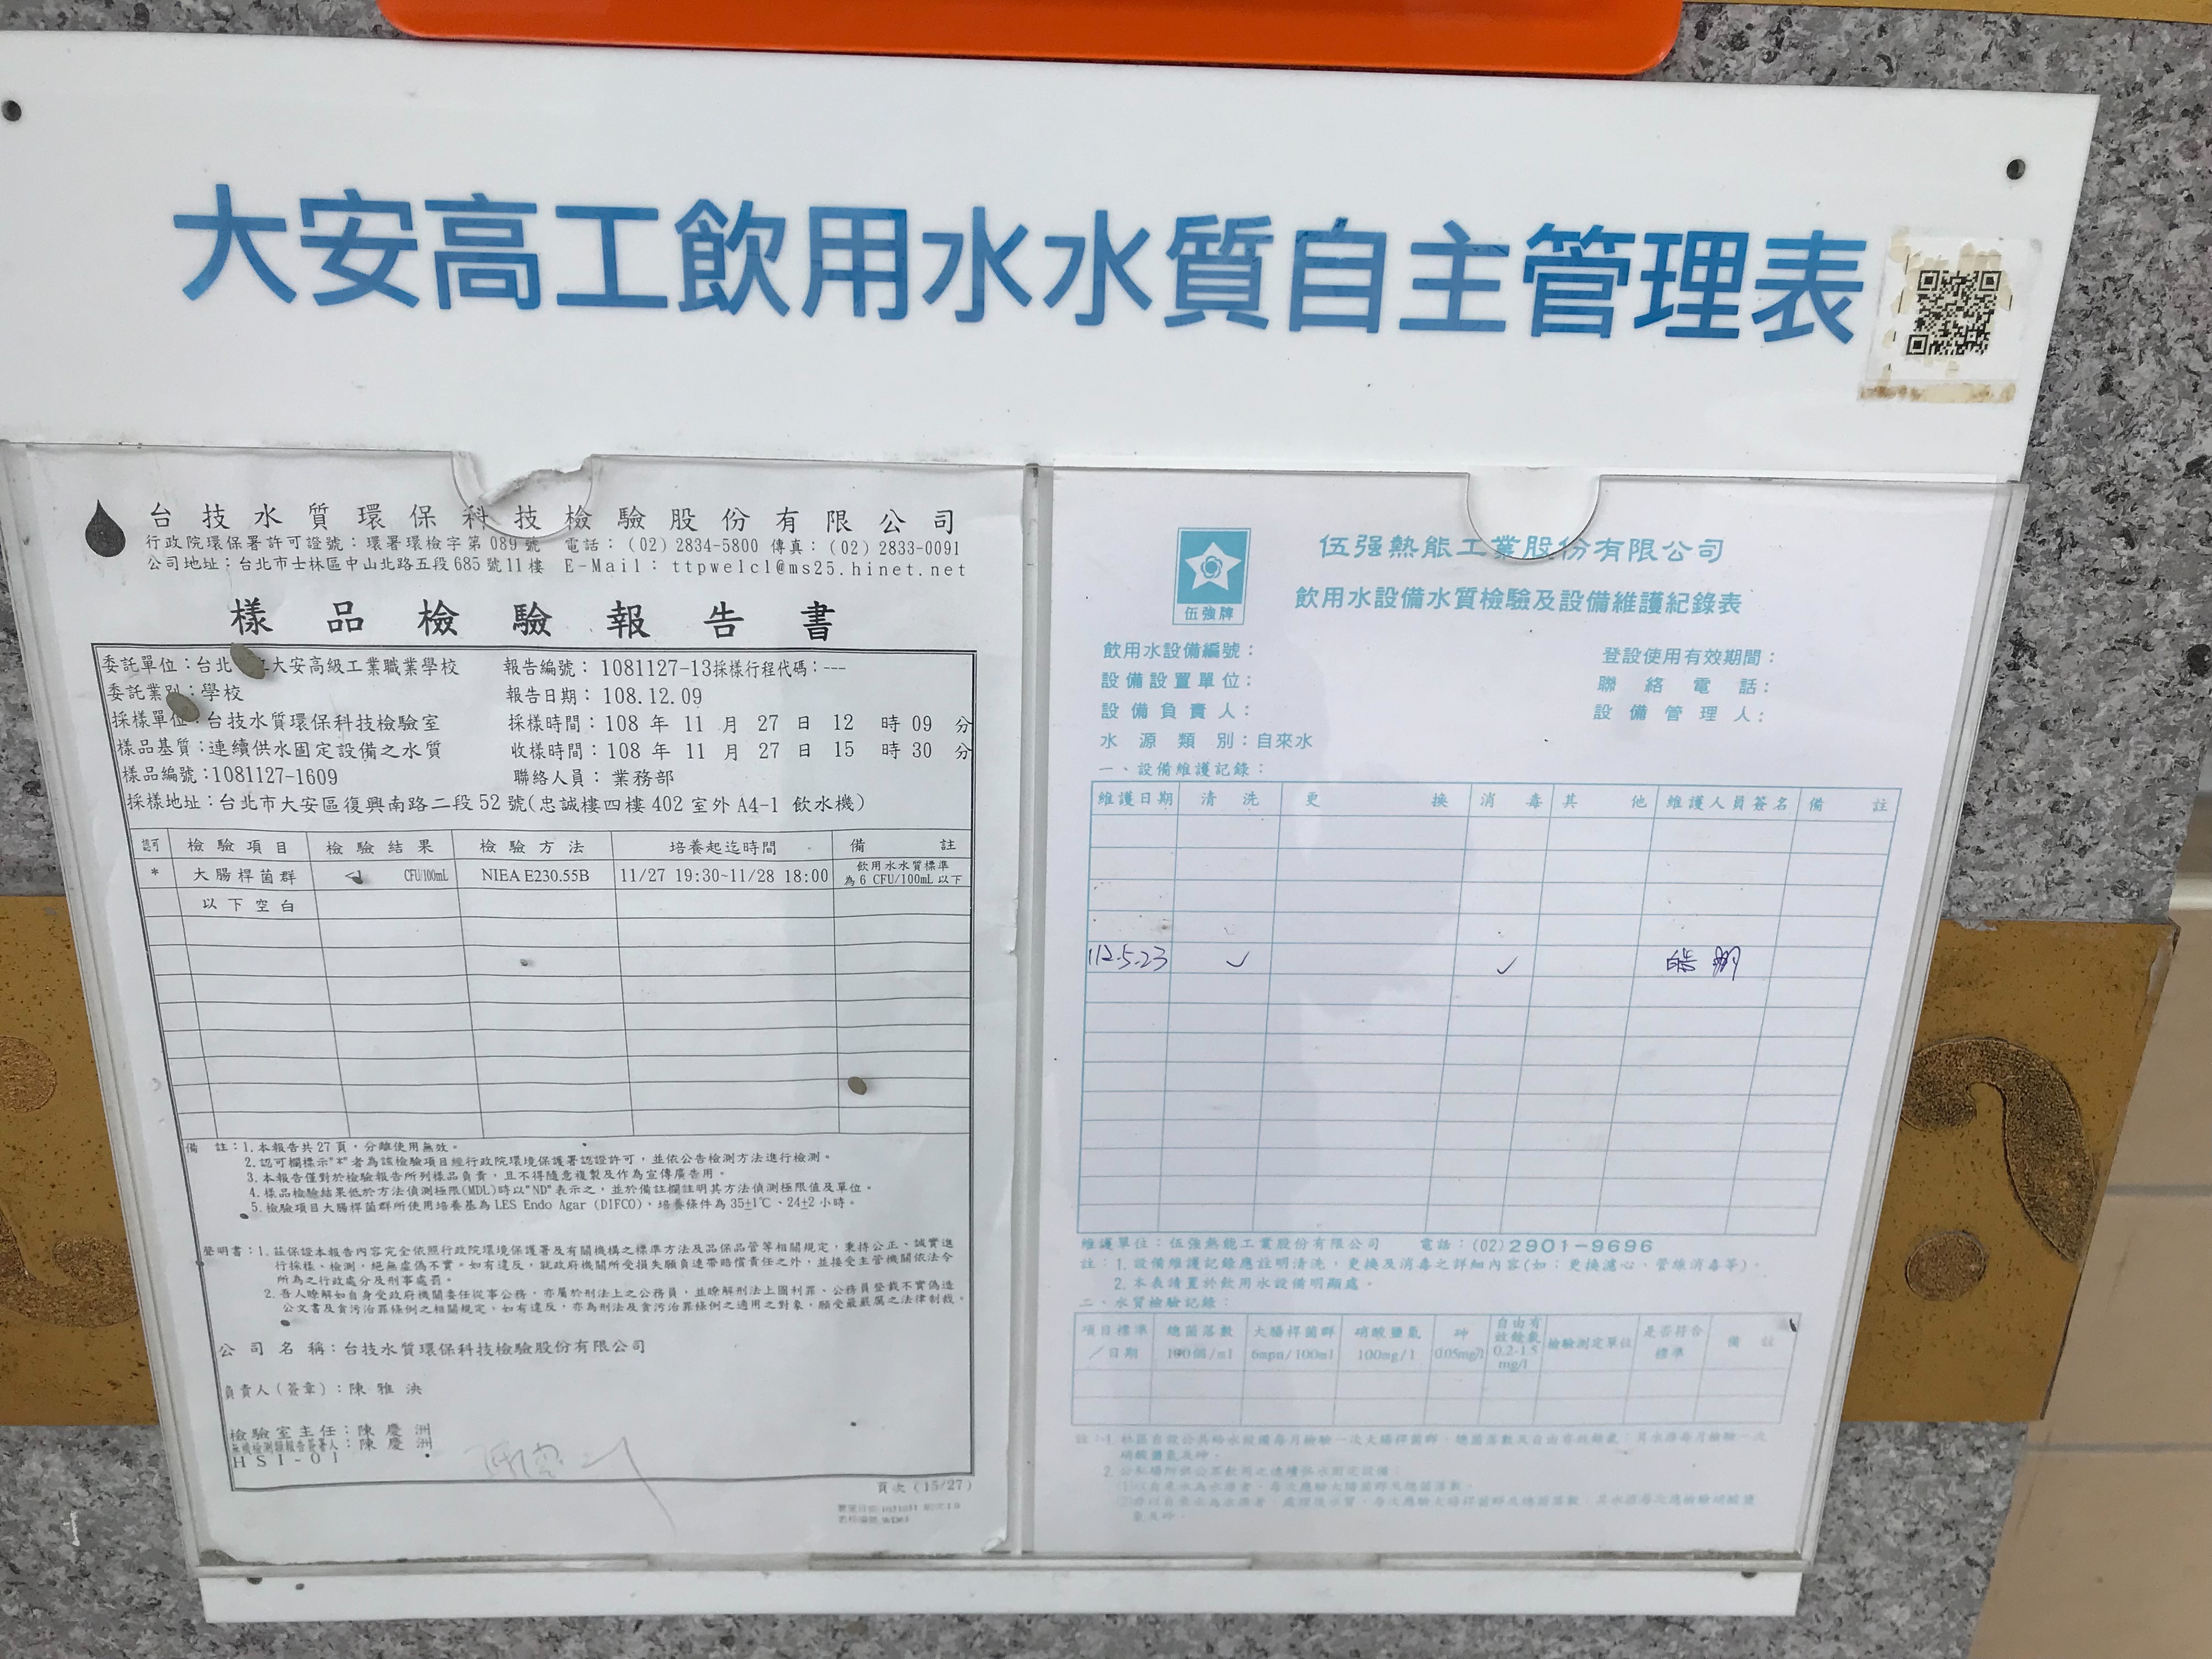 大安高工飲用水水質自主管理表
台技水質環保科技檢驗股份有限公司
行政院環保署許可證號：環署環檢字第089號 電話：(02)2834-5800 傳真：(02)2833-0091
公司地址：台北市士林區中山北路五段685號11樓 E-Mail：ttpwelcl@ms25.hinet.net
樣品檢驗報告書
委託單位：台北 大安高級工業職業學校 報告編號：1081127-13採樣行程代碼：---
委託業別：學校 報告日期：108.12.09
採樣單位：台技水質環保科技檢驗室 採樣時間：108 年 11 月 27 日 12 時 09 分
樣品基質：連續供水固定設備之水質 收樣時間：108 年 11 月 27 日 15 時 30 分
樣品編號：1081127-1609 聯絡人員：業務部
採樣地址：台北市大安區復興南路二段52號(忠誠樓四樓402室外A4-1飲水機)
認可 檢驗項目 檢驗結果 檢驗方法 培養起迄時間 備註
* 大腸桿菌群 <1 CFU/100mL NIEA E230.55B 11/27 19:30~11/28 18:00 飲用水水質標準為6 CFU/100mL以下
以下空白
備 註：1.本報告共27頁，分離使用無效。
2.認可欄標示"*"者為該檢驗項目經行政院環境保護署認證許可，並依公告檢測方法進行檢測。
3.本報告僅對於檢驗報告所列樣品負責，且不得隨意複製及作為宣傳廣告用。
4.樣品檢驗結果低於方法偵測極限(MDL)時以"ND"表示之，並於備註欄註明其方法偵測極限值及單位。
5.檢驗項目大腸桿菌群所使用培養基為LES Endo Agar (DIFCO)，培養條件為35±1℃、24±2小時。
聲明書：1.茲保證本報告內容完全依照行政院環境保護署及有關機構之標準方法及品保品管等相關規定，秉持公正、誠實進
行採樣、檢測，絕無虛偽不實。如有違反，就政府機關所受損失願負連帶賠償責任之外，並接受主管機關依法令
所為之行政處分及刑事處罰。
2.吾人瞭解如自身受政府機關委任從事公務，亦屬於刑法上之公務員，並瞭解刑法上圖利罪、公務員登載不實偽造
公文書及貪污治罪條例之相關規定，如有違反，亦為刑法及貪污治罪條例之適用之對象，願受最嚴厲之法律制裁。
公司名稱：台技水質環保科技檢驗股份有限公司
負責人(簽章)：陳雅泱
檢驗室主任：陳慶洲
無機檢測類報告簽署人：陳慶洲
HSI-01
頁次(15/27)
伍強牌
伍强熱能工業股份有限公司
飲用水設備水質檢驗及設備維護紀錄表
飲用水設備編號： 登設使用有效期間：
設備設置單位： 聯絡電話：
設備負責人： 設備管理人：
水源類別：自來水
一、設備維護記錄：
維護日期 清洗 更換 消毒 其他 維護人員簽名 備註
112.5.23 ✓ ✓
維護單位：伍强熱能工業股份有限公司 電話：(02)2901-9696
註：1.設備維護記錄應註明清洗，更換及消毒之詳細內容(如：更換濾心、管線消毒等)。
2.本表請置於飲用水設備明顯處。
二、水質檢驗記錄：
項目標準／日期 總菌落數 100個/ml 大腸桿菌群 6mpn/100ml 硝酸鹽氮 100mg/l 砷 0.05mg/l 自由有效餘氯 0.2-1.5 mg/l 檢驗測定單位 是否符合標準 備註